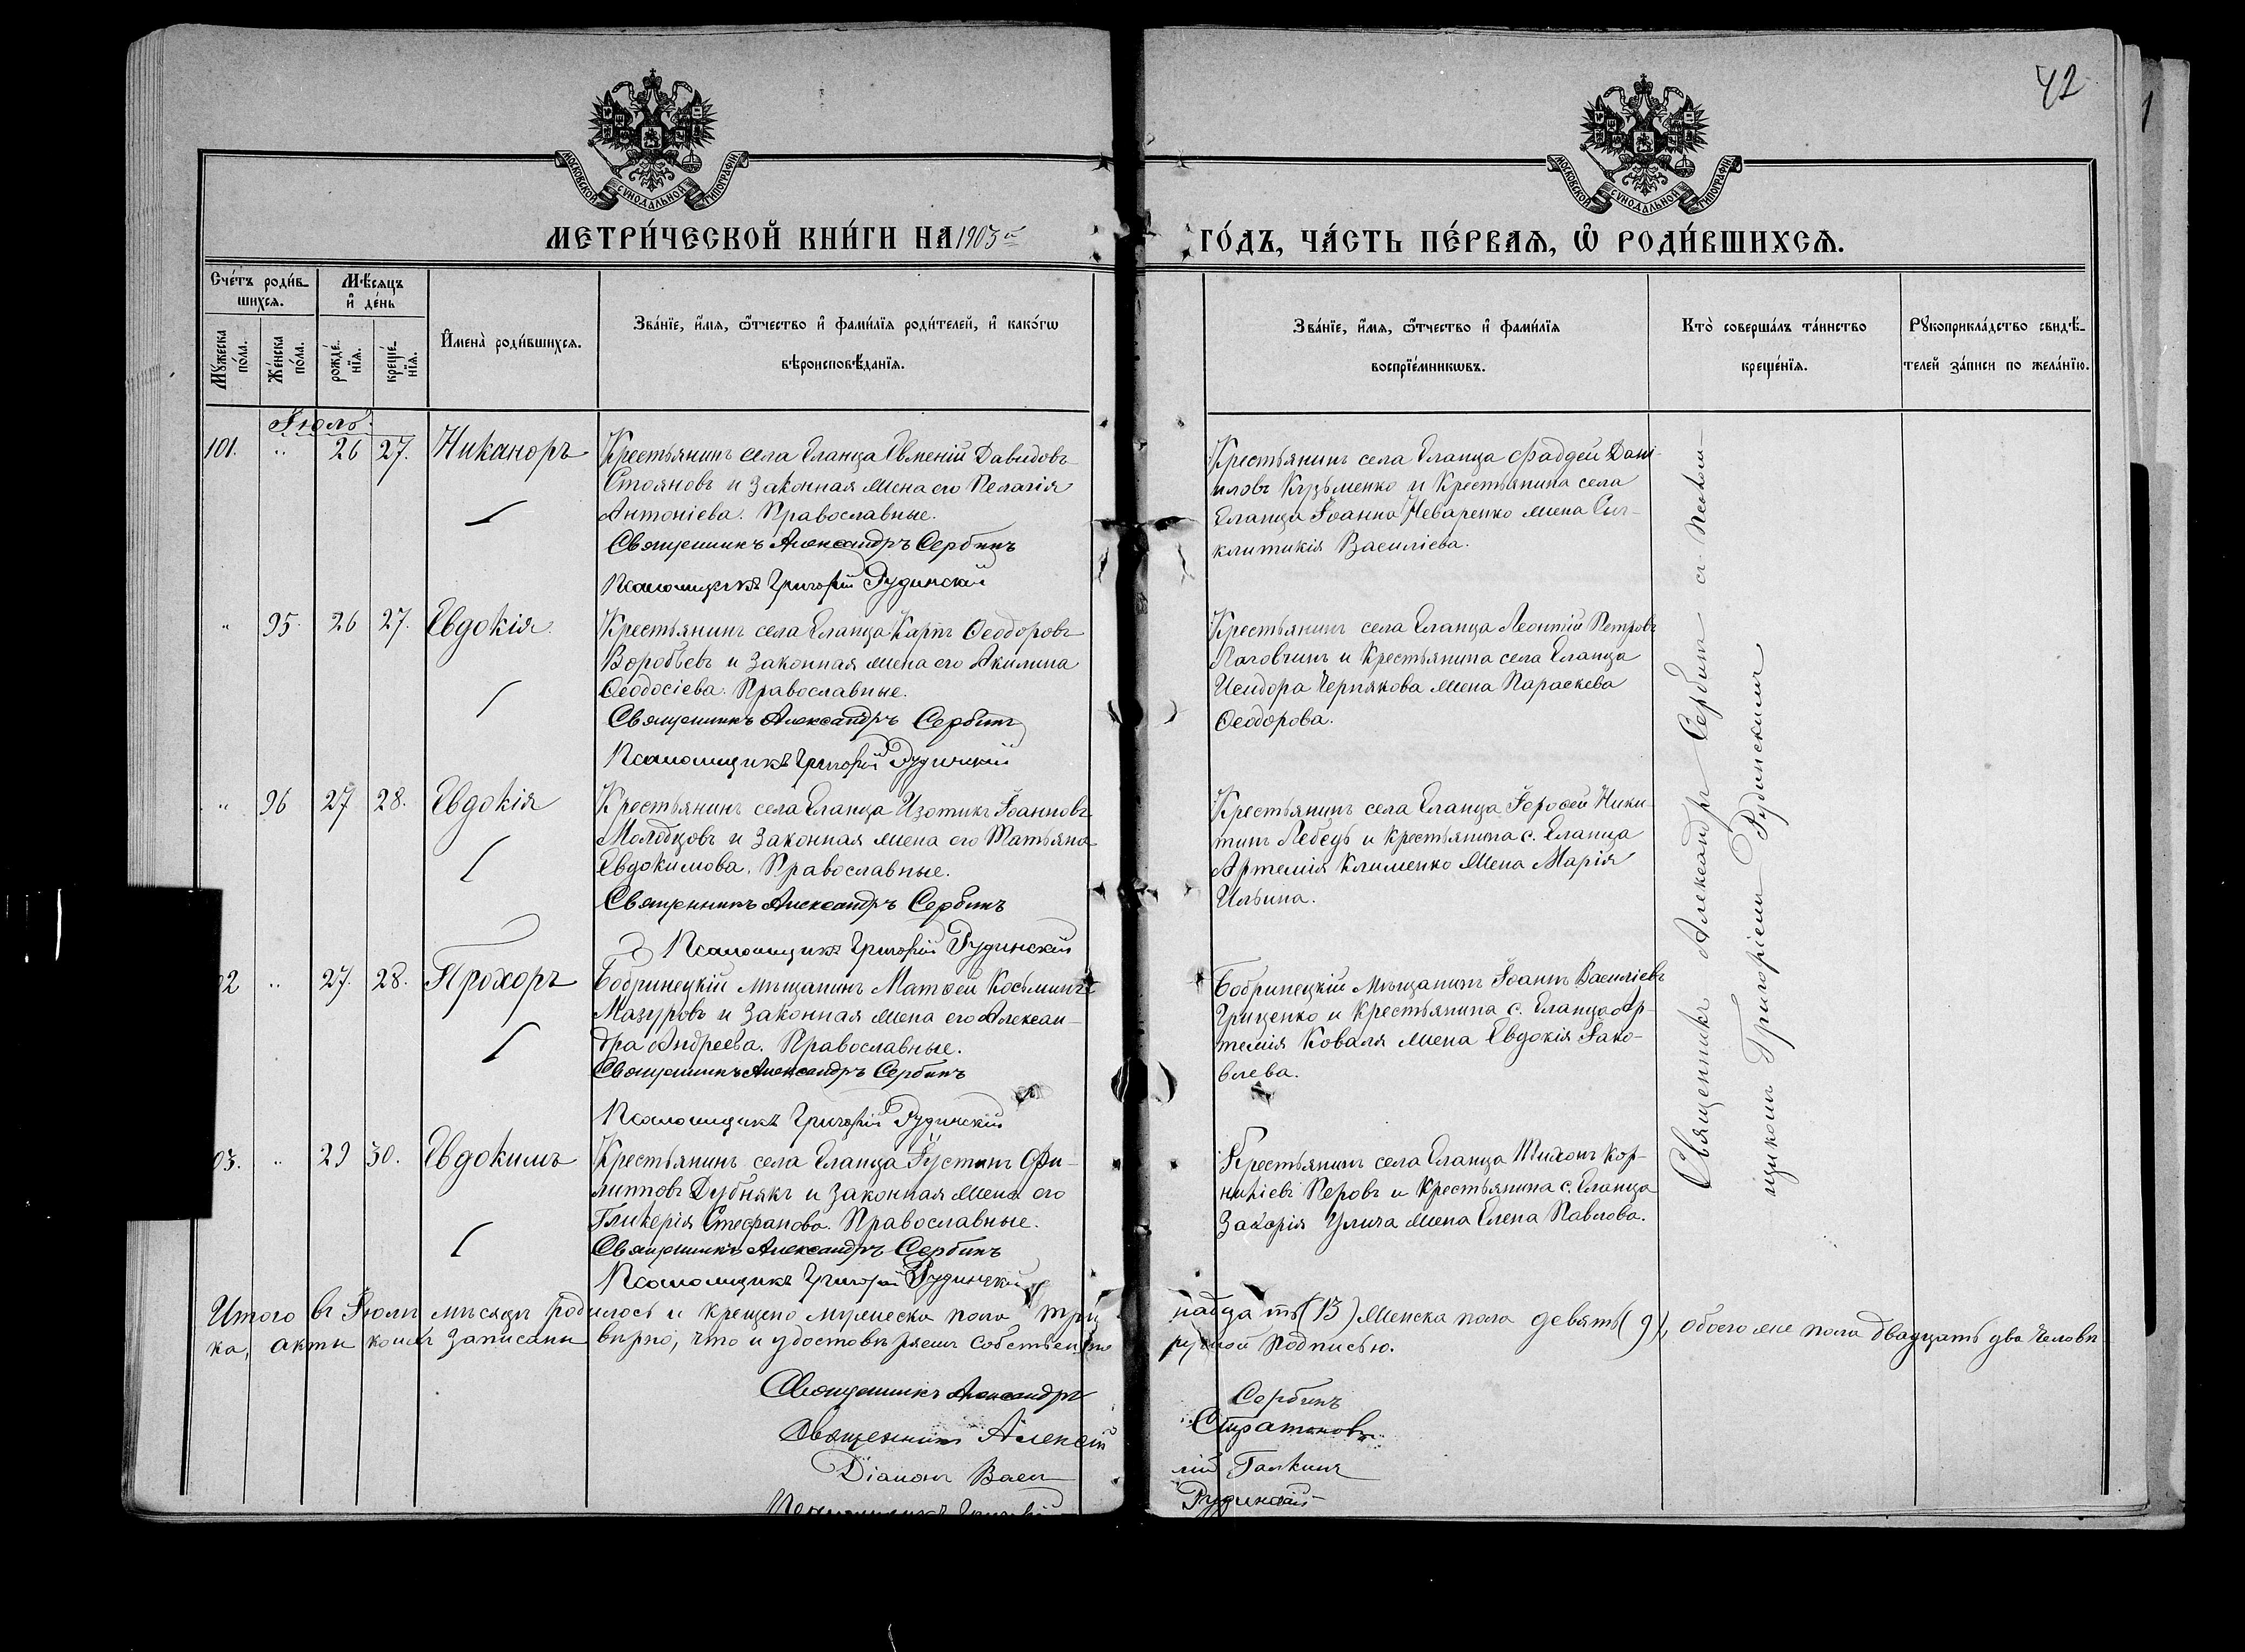 42
МОСКОВСКОЙ СУНОДАЛЬНОЙ ТИПОГРАФІИ
МОСКОВСКОЙ СУНОДАЛЬНОЙ ТИПОГРАФІИ
МЕТРИ́ЧЕСКОЙ КНИ́ГИ НА 1903й
ГО́ДЪ, ЧА́СТЬ ПЕ́РВАѦ, Ѡ҆ РОДИ́ВШИХСѦ.
Сче́тъ роди́в-
шихсѧ.
Мꙋ́жеска
по́ла.
Же́нска
по́ла.
Мѣ́сѧцъ
и҆ де́нь
рожде́-
нїѧ.
креще́-
нїѧ.
И҆мена̀ роди́вшихсѧ.
Зва́нїе, и҆́мѧ, ѻ҆́тчество и҆ фами́лїѧ роди́телей, и҆ како́гѡ
вѣроисповѣ́данїѧ.
Зва́нїе, и҆́мѧ, ѻ҆́тчество и҆ фами́лїѧ
воспрїе́мникѡвъ.
Кто̀ соверша́лъ та́инство
креще́нїѧ.
Рꙋкоприкла́дство свидѣ́-
телей за́писи по жела́нїю.
Іюль.
101. " 26 27. Никаноръ
Крестьянинъ села Еланца Евменій Давидовъ
Стояновъ и законная жена его Пелагія
Антоніева. Православные.
Священникъ Александръ Сербинъ
Псаломщикъ Григорій Рудинскій
Крестьянинъ села Еланца Фаддей Дані-
иловъ Кузьменко и крестьянина села
Еланца Іоанна Неваренко жена Син-
клитикія Василіева.
" 95. 26 27. Евдокія.
Крестьянинъ села Еланца Карпъ Ѳеодоровъ
Воробьевъ и законная жена его Акилина
Ѳеодосіева. Православные.
Священникъ Александръ Сербинъ
Псаломщикъ Григорій Рудинскій
Крестьянинъ села Еланца Леонтій Петровъ
Логовчинъ и крестьянина села Еланца
Исидора Чернякова жена Параскева
Ѳеодорова.
" 96 27 28. Евдокія
Крестьянинъ села Еланца Изотикъ Іоанновъ
Молодцовъ и законная жена его Татьяна
Евдокимова. Православные.
Священникъ Александръ Сербинъ
Псаломщикъ Григорій Рудинскій
Крестьянинъ села Еланца Іероѳей Ники-
тинъ Лебедь и крестьянина с. Еланца
Артемія Клименко жена Марія
Ильина.
02 " 27. 28. Прохоръ
Бобринецкій мѣщанинъ Матѳей Косьминъ
Мазуровъ и законная жена его Алексан-
дра Андреева. Православные.
Священникъ Александръ Сербинъ
Псаломщикъ Григорій Рудинскій
Бобринецкій мѣщанинъ Іоаннъ Василіевъ
Гриценко и крестьянина с. Еланца Ар-
темія Коваля жена Евдокія Іако-
влева.
03. " 29 30. Евдокимъ
Крестьянинъ села Еланца Іустинъ Фи-
липповъ Дубнякъ и законная жена его
Гликерія Стефанова. Православные.
Священникъ Александръ Сербинъ
Псаломщикъ Григорій Рудинскій
Крестьянинъ села Еланца Тихонъ Кор-
ниліевъ Перовъ и крестьянина с. Еланца
Захарія Улича жена Елена Павлова.
Священникъ Александръ Сербинъ съ псалом-
щикомъ Григоріемъ Рудинскимъ
Итого въ Іюлѣ мѣсяцѣ родилось и крещено мужеска пола три
надцать (13) женска пола девять (9), обоего же пола двадцать два человѣ
ка, акты коихъ записаны вѣрно, что и удостовѣряемъ собственно
ручной подписью.
Священникъ Александръ Сербинъ
Священникъ Алексій Стратоновъ
Діаконъ Васи лій Галкинъ
Псаломщикъ Григорій Рудинскій